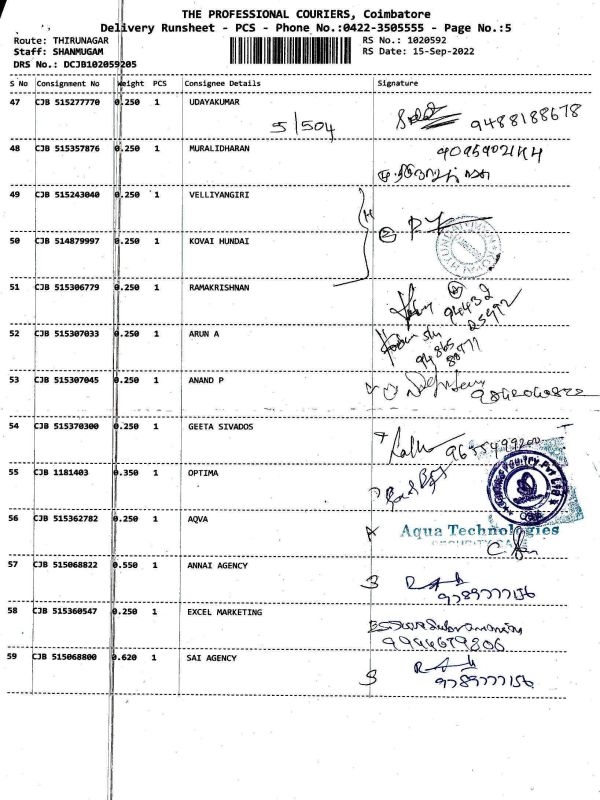 THE PROFESSIONAL COURIERS, Coimbatore
Delivery Runsheet - PCS - Phone No.:0422-3505555 - Page No.:5
Route: THIRUNAGAR RS No.: 1020592
Staff: SHANMUGAM RS Date: 15-Sep-2022
DRS No.: DCJB102059205
S No Consignment No Weight PCS Consignee Details Signature
47 CJB 515277770 0.250 1 UDAYAKUMAR
5/504 9488188678
48 CJB 515357876 0.250 1 MURALIDHARAN
49 CJB 515243040 0.250 1 VELLIYANGIRI
50 CJB 514879997 0.250 1 KOVAI HUNDAI
51 CJB 515306779 0.250 1 RAMAKRISHNAN
52 CJB 515307033 0.250 1 ARUN A
53 CJB 515307045 0.250 1 ANAND P
54 CJB 515370300 0.250 1 GEETA SIVADOS
9655499200
55 CJB 1181403 0.350 1 OPTIMA
56 CJB 515362782 0.250 1 AQVA
Aqua Technologies
57 CJB 515068822 0.550 1 ANNAI AGENCY
9789777156
58 CJB 515360547 0.250 1 EXCEL MARKETING
9944679806
59 CJB 515068800 0.620 1 SAI AGENCY
9789777156